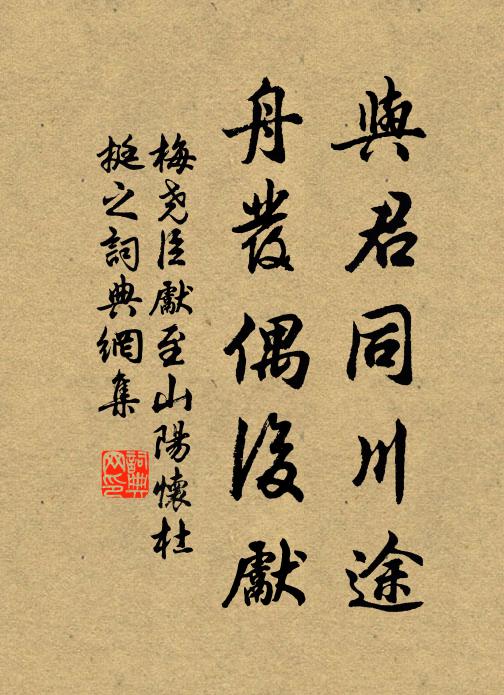 與君同川途
舟發偶後獻
梅堯臣獻至山陽懷杜
挺之詞典網集
詞典
网印